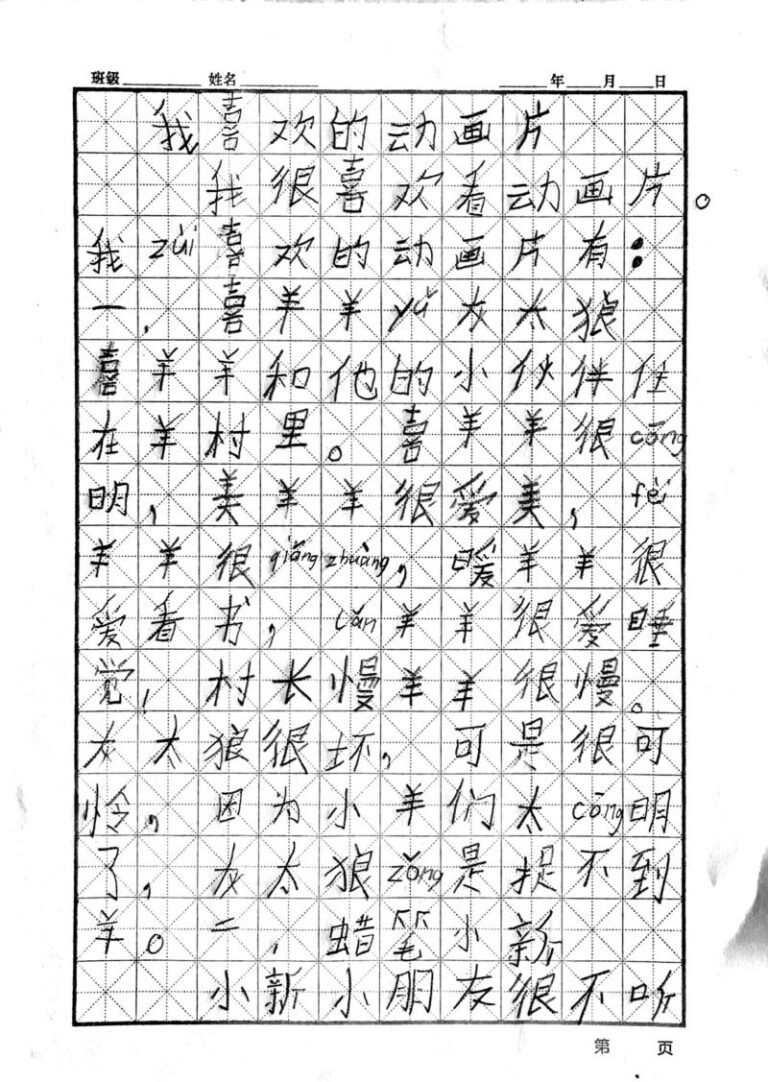 班級 姓名 年 月 日
我喜欢的动画片
我很喜欢看动画片。
我zuì喜欢的动画片有：
一，喜羊羊yǔ灰太狼
喜羊羊和他的小伙伴住
在羊村里。喜羊羊很cōng
明，美羊羊很爱美，fèi
羊羊很qiáng zhuàng，暖羊羊很
爱看书，lǎn羊羊很爱睡
觉，村长慢羊羊很慢。
灰太狼很坏，可是很可
怜，因为小羊们太cōng明
了，灰太狼zǒng是捉不到
羊。二，蜡笔小新
小新小朋友很不听
第 页